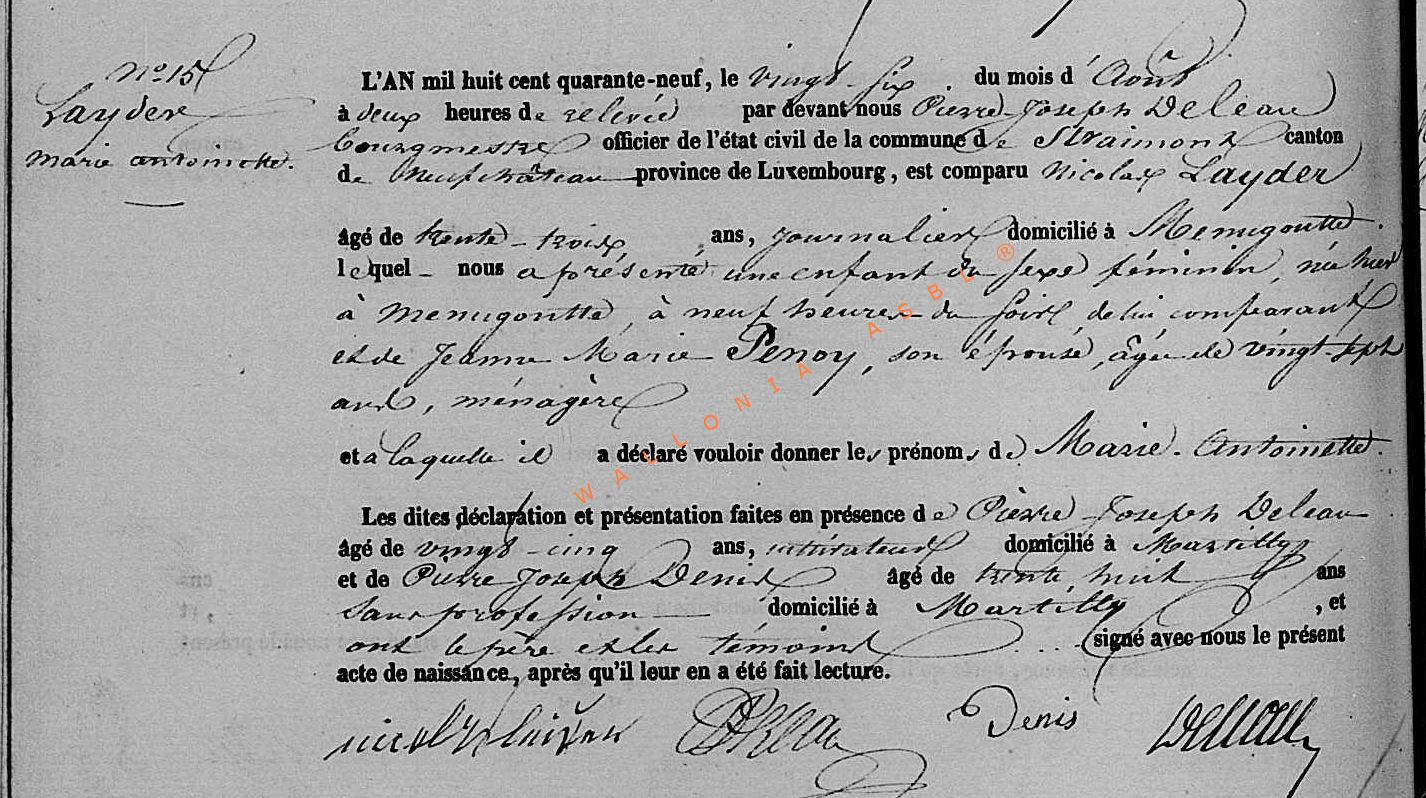 No 15
Layder
marie antoinette.
L'AN mil huit cent quarante-neuf, le vingt-six du mois d'Août
à deux heures de relevée par devant nous Pierre-Joseph Deleau
bourgmestre officier de l'état civil de la commune de Straimont canton
de neufchâteau province de Luxembourg, est comparu Nicolas Layder
âgé de trente-trois ans, journalier domicilié à Menugoutte.
lequel nous a présenté une enfant du sexe féminin, née hier
à menugoutte, à neuf heures du soir, de lui comparant
et de Jeanne Marie Penoy, son épouse, âgée de vingt-sept
ans, ménagère
et à laquelle il a déclaré vouloir donner les prénoms de Marie-Antoinette.
Les dites déclaration et présentation faites en présence de Pierre-Joseph Deleau
âgé de vingt-cinq ans, domicilié à Martilly
et de Pierre Joseph Denis âgé de trente huit ans
sans profession domicilié à Martilly, et
ont le père et les témoins signé avec nous le présent
acte de naissance, après qu'il leur en a été fait lecture.
Denis
WALLONIA ASBL ®